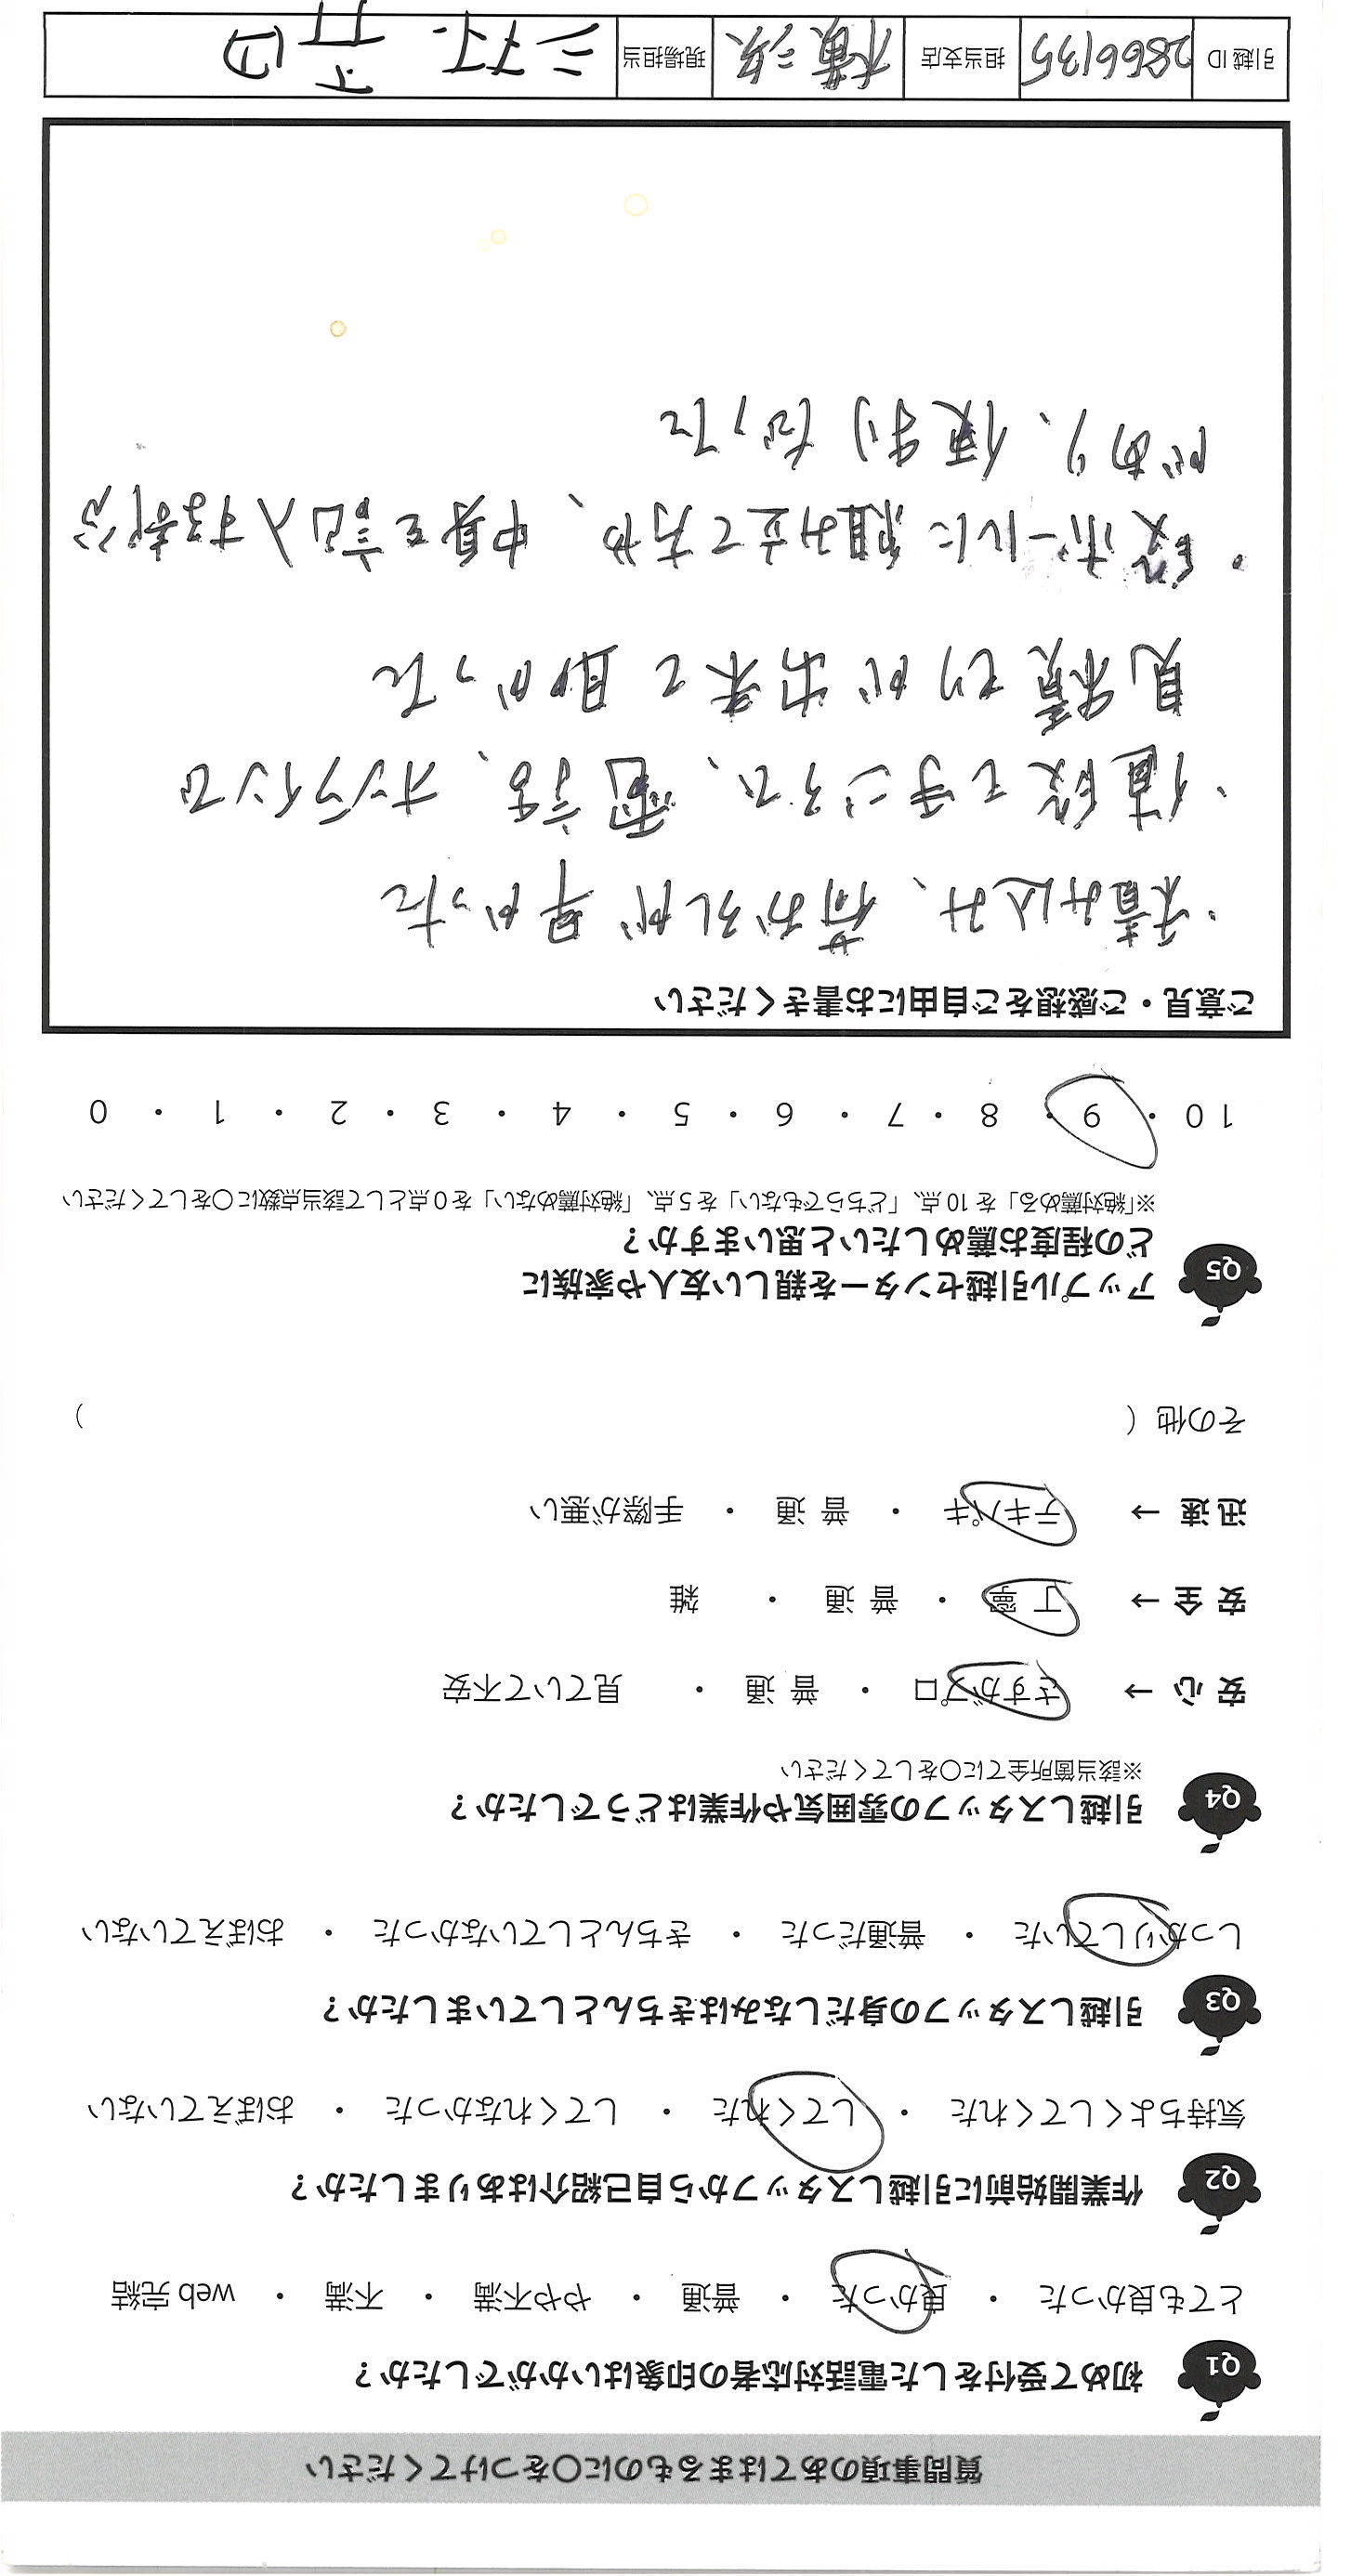 質問事項のあてはまるものに〇をつけてください
Q1 初めて受付をした電話対応者の印象はいかがでしたか？
とても良かった ・ 良かった ・ 普通 ・ やや不満 ・ 不満 ・ web 完結
Q2 作業開始前に引越しスタッフから自己紹介はありましたか？
気持ちよくしてくれた ・ してくれた ・ してくれなかった ・ おぼえていない
Q3 引越しスタッフの身だしなみはきちんとしていましたか？
しっかりしていた ・ 普通だった ・ きちんとしていなかった ・ おぼえていない
Q4 引越しスタッフの雰囲気や作業はどうでしたか？
※該当箇所全てに〇をしてください
安心 → さすがプロ ・ 普通 ・ 見ていて不安
安全 → 丁寧 ・ 普通 ・ 雑
迅速 → テキパキ ・ 普通 ・ 手際が悪い
その他（ ）
Q5 アップル引越センターを親しい友人や家族に
どの程度お薦めしたいと思いますか？
※「絶対薦める」を 10 点、「どちらでもない」を 5 点、「絶対薦めない」を 0 点として該当点数に〇をしてください
10 ・ 9 ・ 8 ・ 7 ・ 6 ・ 5 ・ 4 ・ 3 ・ 2 ・ 1 ・ 0
ご意見・ご感想をご自由にお書きください
・積み込み、荷おろしが早かった
・値段て手ごろで、電話、オンラインで
見積もりが出来て助かった
・段ボールに組み立て方や、中身を記入する部分
があり、便利だった
引越 ID 2866135 担当支店 横浜 現場担当